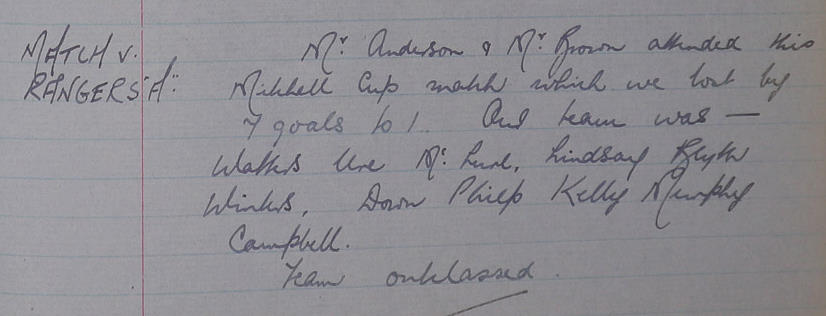 MATCH v.
RANGERS "A":
Mr Anderson & Mr Brown attended this
Mitchell Cup match which we lost by
7 goals to 1. Our team was —
Watters Ure Lindsay Blyth
Winters, Down Philp Kelly Murphy
Campbell.
Team outclassed.